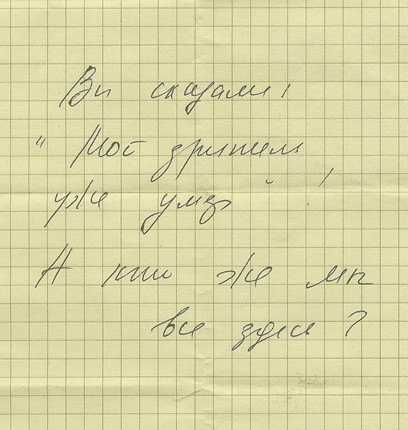 Вы сказали:
" Мой зритель
уже умер"!
А кто же мы
все здесь?